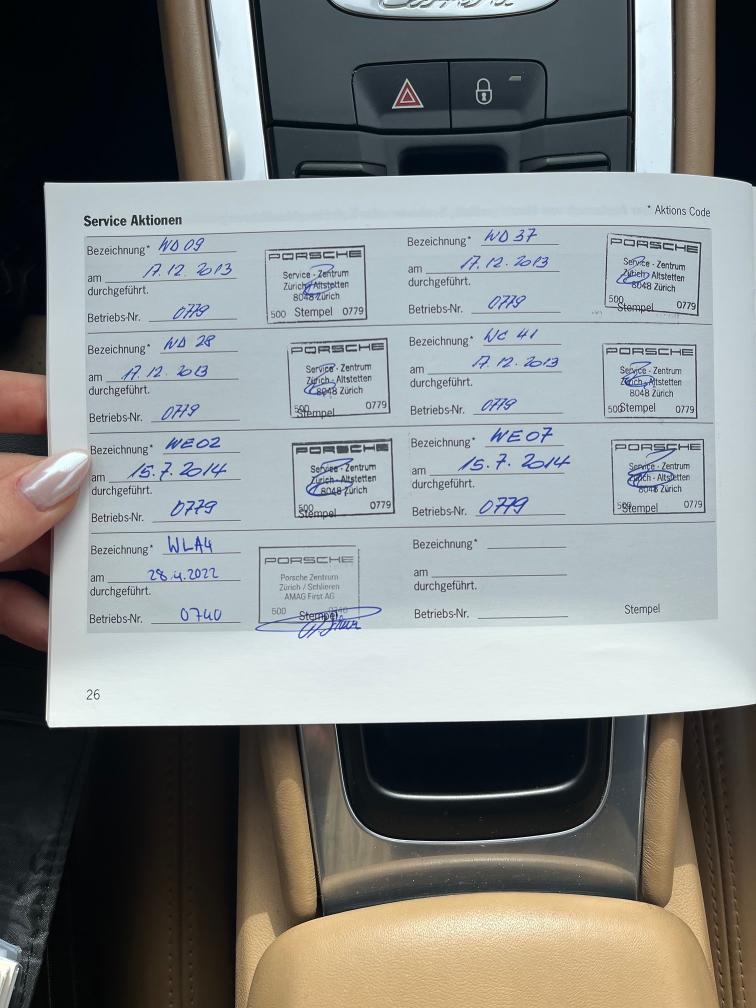 Service Aktionen
* Aktions Code
Bezeichnung* WD 09
am 17.12.2013
durchgeführt.
Betriebs-Nr. 0779
PORSCHE
Service - Zentrum
Zürich - Altstetten
8048 Zürich
500 Stempel 0779
Bezeichnung* WD 37
am 17.12.2013
durchgeführt.
Betriebs-Nr. 0779
PORSCHE
Service - Zentrum
Zürich - Altstetten
8048 Zürich
500 Stempel 0779
Bezeichnung* WD 28
am 17.12.2013
durchgeführt.
Betriebs-Nr. 0779
PORSCHE
Service - Zentrum
Zürich - Altstetten
8048 Zürich
500 Stempel 0779
Bezeichnung* WC 41
am 17.12.2013
durchgeführt.
Betriebs-Nr. 0779
PORSCHE
Service - Zentrum
Zürich - Altstetten
8048 Zürich
500 Stempel 0779
Bezeichnung* WE02
am 15.7.2014
durchgeführt.
Betriebs-Nr. 0779
PORSCHE
Service - Zentrum
Zürich - Altstetten
8048 Zürich
500 Stempel 0779
Bezeichnung* WE07
am 15.7.2014
durchgeführt.
Betriebs-Nr. 0779
PORSCHE
Service - Zentrum
Zürich - Altstetten
8048 Zürich
500 Stempel 0779
Bezeichnung* WLA4
am 28.4.2022
durchgeführt.
Betriebs-Nr. 0740
PORSCHE
Porsche Zentrum
Zürich / Schlieren
AMAG First AG
500 Stempel 0740
Bezeichnung*
am
durchgeführt.
Betriebs-Nr.
Stempel
26